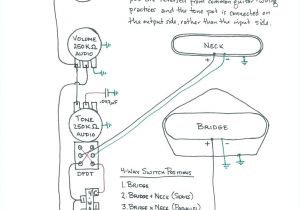 from common guitar wiring
practices and the tone pot is connected on
the output side, rather than the input side.
VOLUME
250KΩ
AUDIO
NECK
TONE
250KΩ
AUDIO
BRIDGE
DPDT
4-WAY SWITCH POSITIONS
1. BRIDGE
2. BRIDGE + NECK (SERIES)
3. BRIDGE + NECK (PARALLEL)